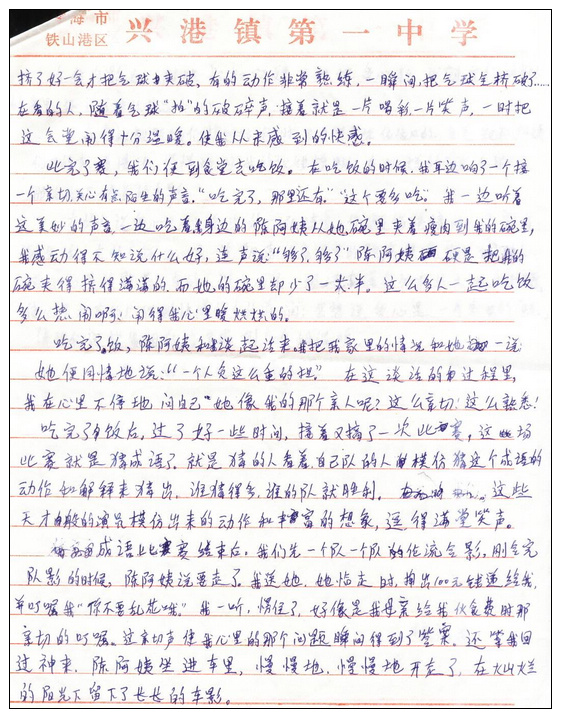 海市
铁山港区 兴港镇第一中学
挤了好一会才把气球挤破，有的动作非常熟练，一瞬间把气球全挤破了……
在看的人，随着气球"拍"的破碎声，接着就是一片喝彩，一片笑声，一时把
这会堂闹得十分温暖。使我从未感到的快感。
比完了赛，我们便到食堂去吃饭。在吃饭的时候，我耳边响了一个接
一个亲切，关心，有点陌生的声音。"吃完了，那里还有。""这个要多吃。"我一边听着
这美妙的声音，一边吃着，身边的陈阿姨从她碗里夹着瘦肉到我的碗里，
我感动得不知说什么好，连声说："够了，够了"陈阿姨硬是把我的
碗夹得挤得满满的，而她的碗里却少了一大半。这么多人一起吃饭
多么热闹啊！闹得我心里暖烘烘的。
吃完了饭，陈阿姨和我谈起话来，我把我家里的情况和她一说
她便同情地说："一个人负这么重的担。"在这谈话的过程里，
我在心里不停地问自己"她像我的那个亲人呢？这么亲切！这么熟悉！
吃完了饭后，过了好一些时间，接着又搞了一次比赛，这场
比赛就是猜成语了。就是猜的人看着自己队的人模仿猜这个成语的
动作和解释来猜出，谁猜得多，谁的队就胜利。这些
天才般的演员模仿出来的动作和丰富的想象，逗得满堂笑声。
成语比赛结束后，我们先一个队一个队的轮流合影，刚合完
队影的时候，陈阿姨说要走了。我送她，她临走时，掏出100元钱递给我，
并叮嘱我"你不要乱花哦。"我一听，愣住了，好像是我母亲给我伙食费时那
亲切的叮嘱。这亲切声使我心里的那个问题瞬间得到了答案。还等我回
过神来，陈阿姨坐进车里，慢慢地，慢慢地开走了，在火山烂
的阳光下留下了长长的车影。